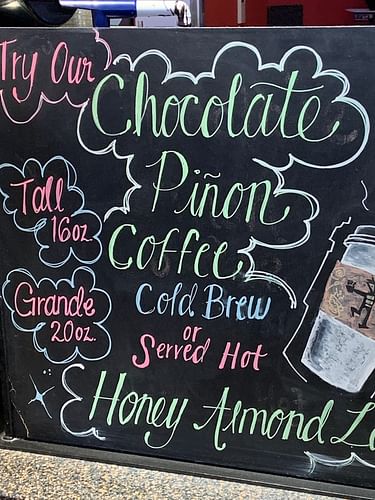 Try Our
Chocolate
Piñon
Coffee
Tall
16oz.
Grande
20oz.
Cold Brew
or
Served Hot
Honey Almond